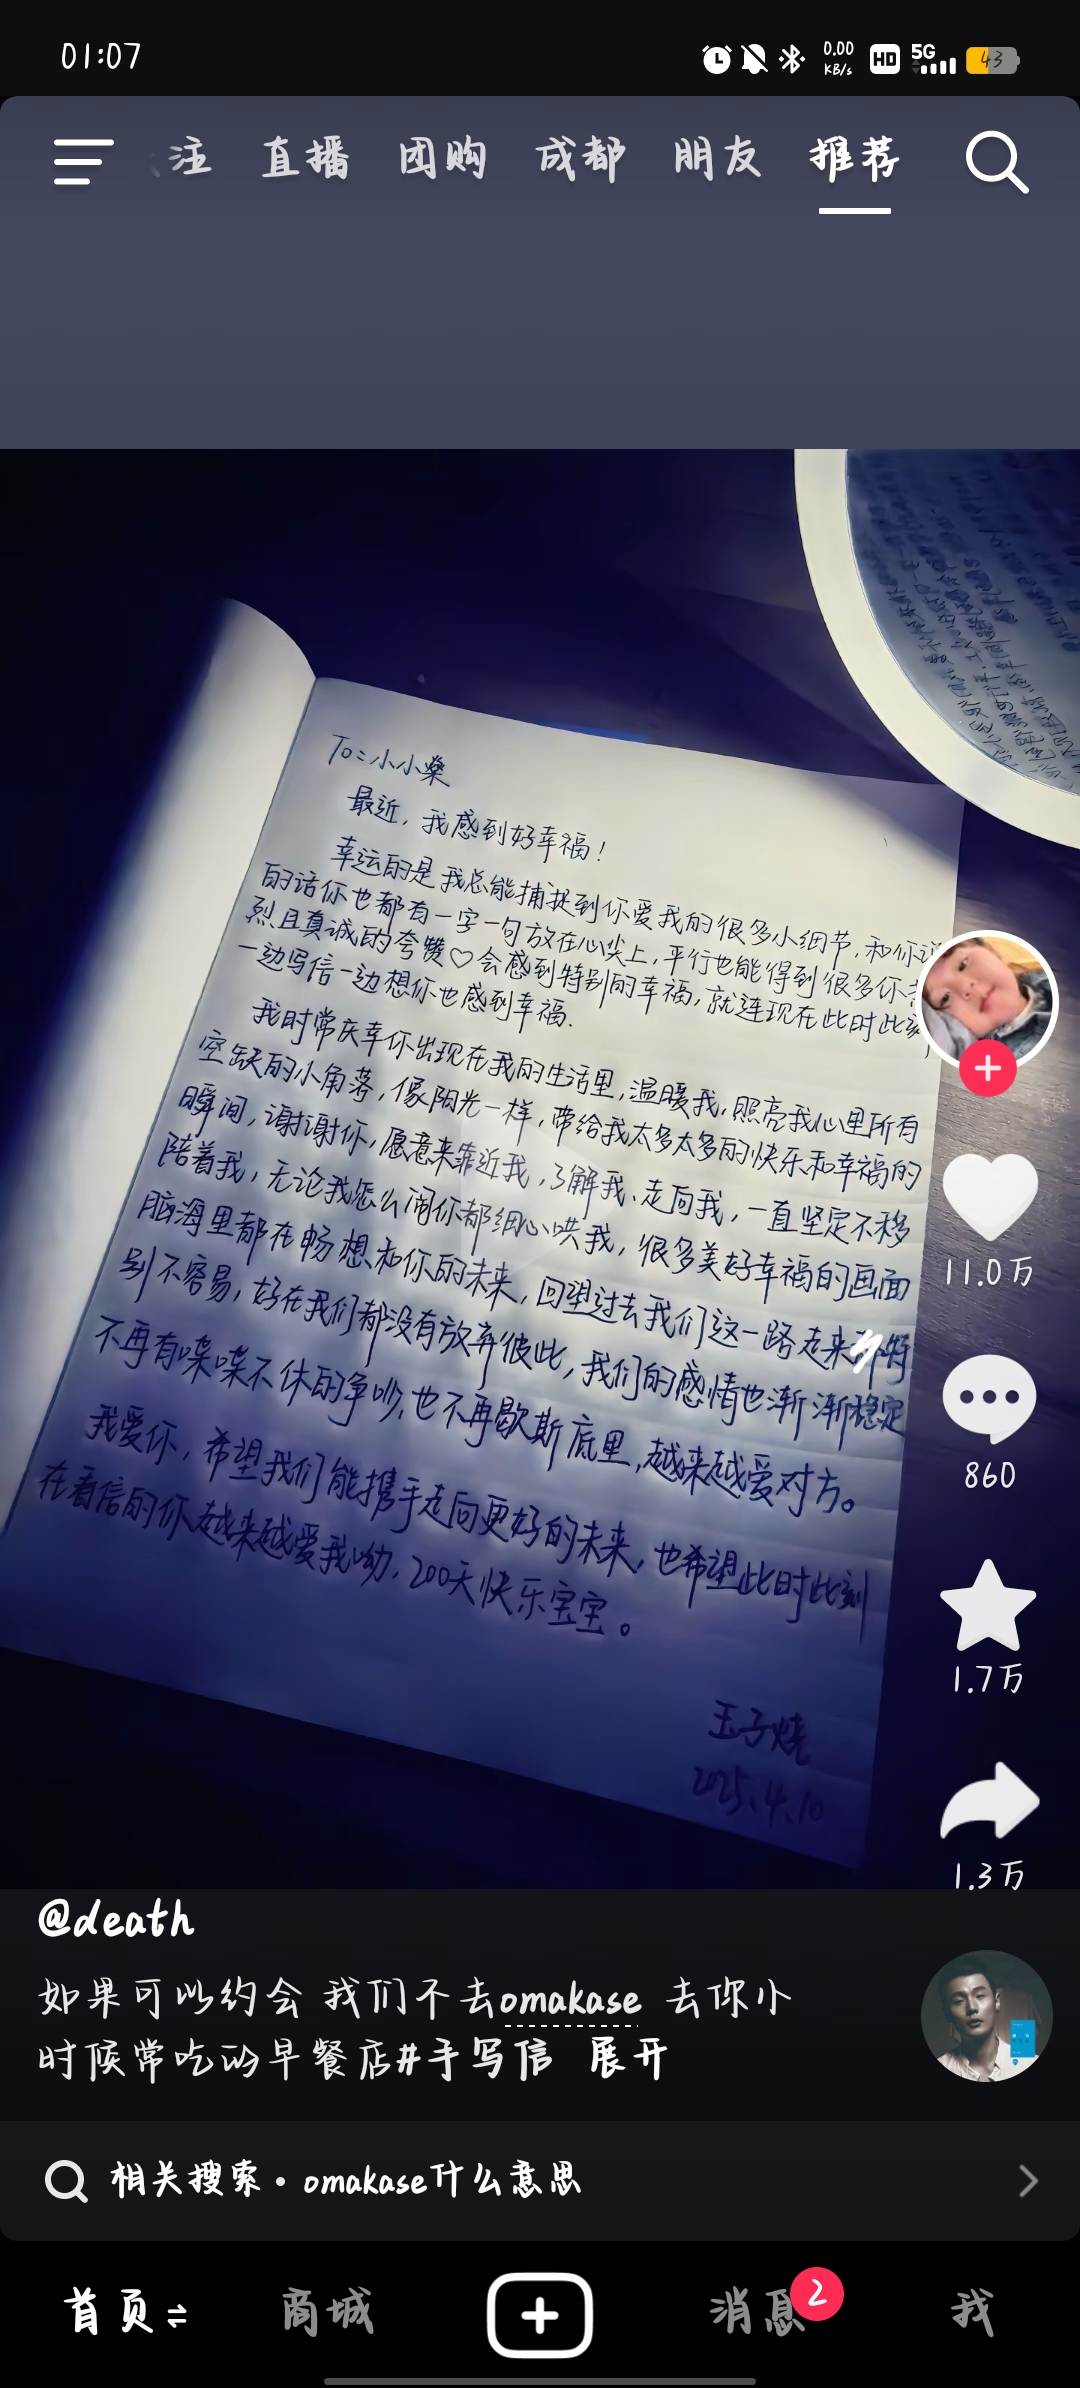 01:07
0.00
KB/s
HD
5G
43
注 直播 团购 成都 朋友 推荐
To:小小燊
最近,我感到好幸福!
幸运的是我总能捕捉到你爱我的很多小细节,和你说
的话你也都有一字一句放在心尖上,平行也能得到很多你
烈且真诚的夸赞♡会感到特别的幸福,就连现在此时此刻
一边写信一边想你也感到幸福.
我时常庆幸你出现在我的生活里,温暖我,照亮我心里所有
空缺的小角落,像阳光一样,带给我太多太多的快乐和幸福的
瞬间,谢谢你,愿意来靠近我,了解我、走向我,一直坚定不移
陪着我,无论我怎么闹你都细心哄我,很多美好幸福的画面
脑海里都在畅想和你的未来,回望过去我们这一路走来 特
别不容易,好在我们都没有放弃彼此,我们的感情也渐渐稳定
不再有喋喋不休的争吵,也不再歇斯底里,越来越爱对方。
我爱你,希望我们能携手走向更好的未来,也希望此时此刻
在看信的你越来越爱我呦,200天快乐宝宝。
玉子烧
2025.4.10
11.0万
860
1.7万
1.3万
@death
如果可以约会 我们不去omakase 去你小
时候常吃的早餐店#手写信 展开
相关搜索·omakase什么意思
首页 商城 消息 2 我